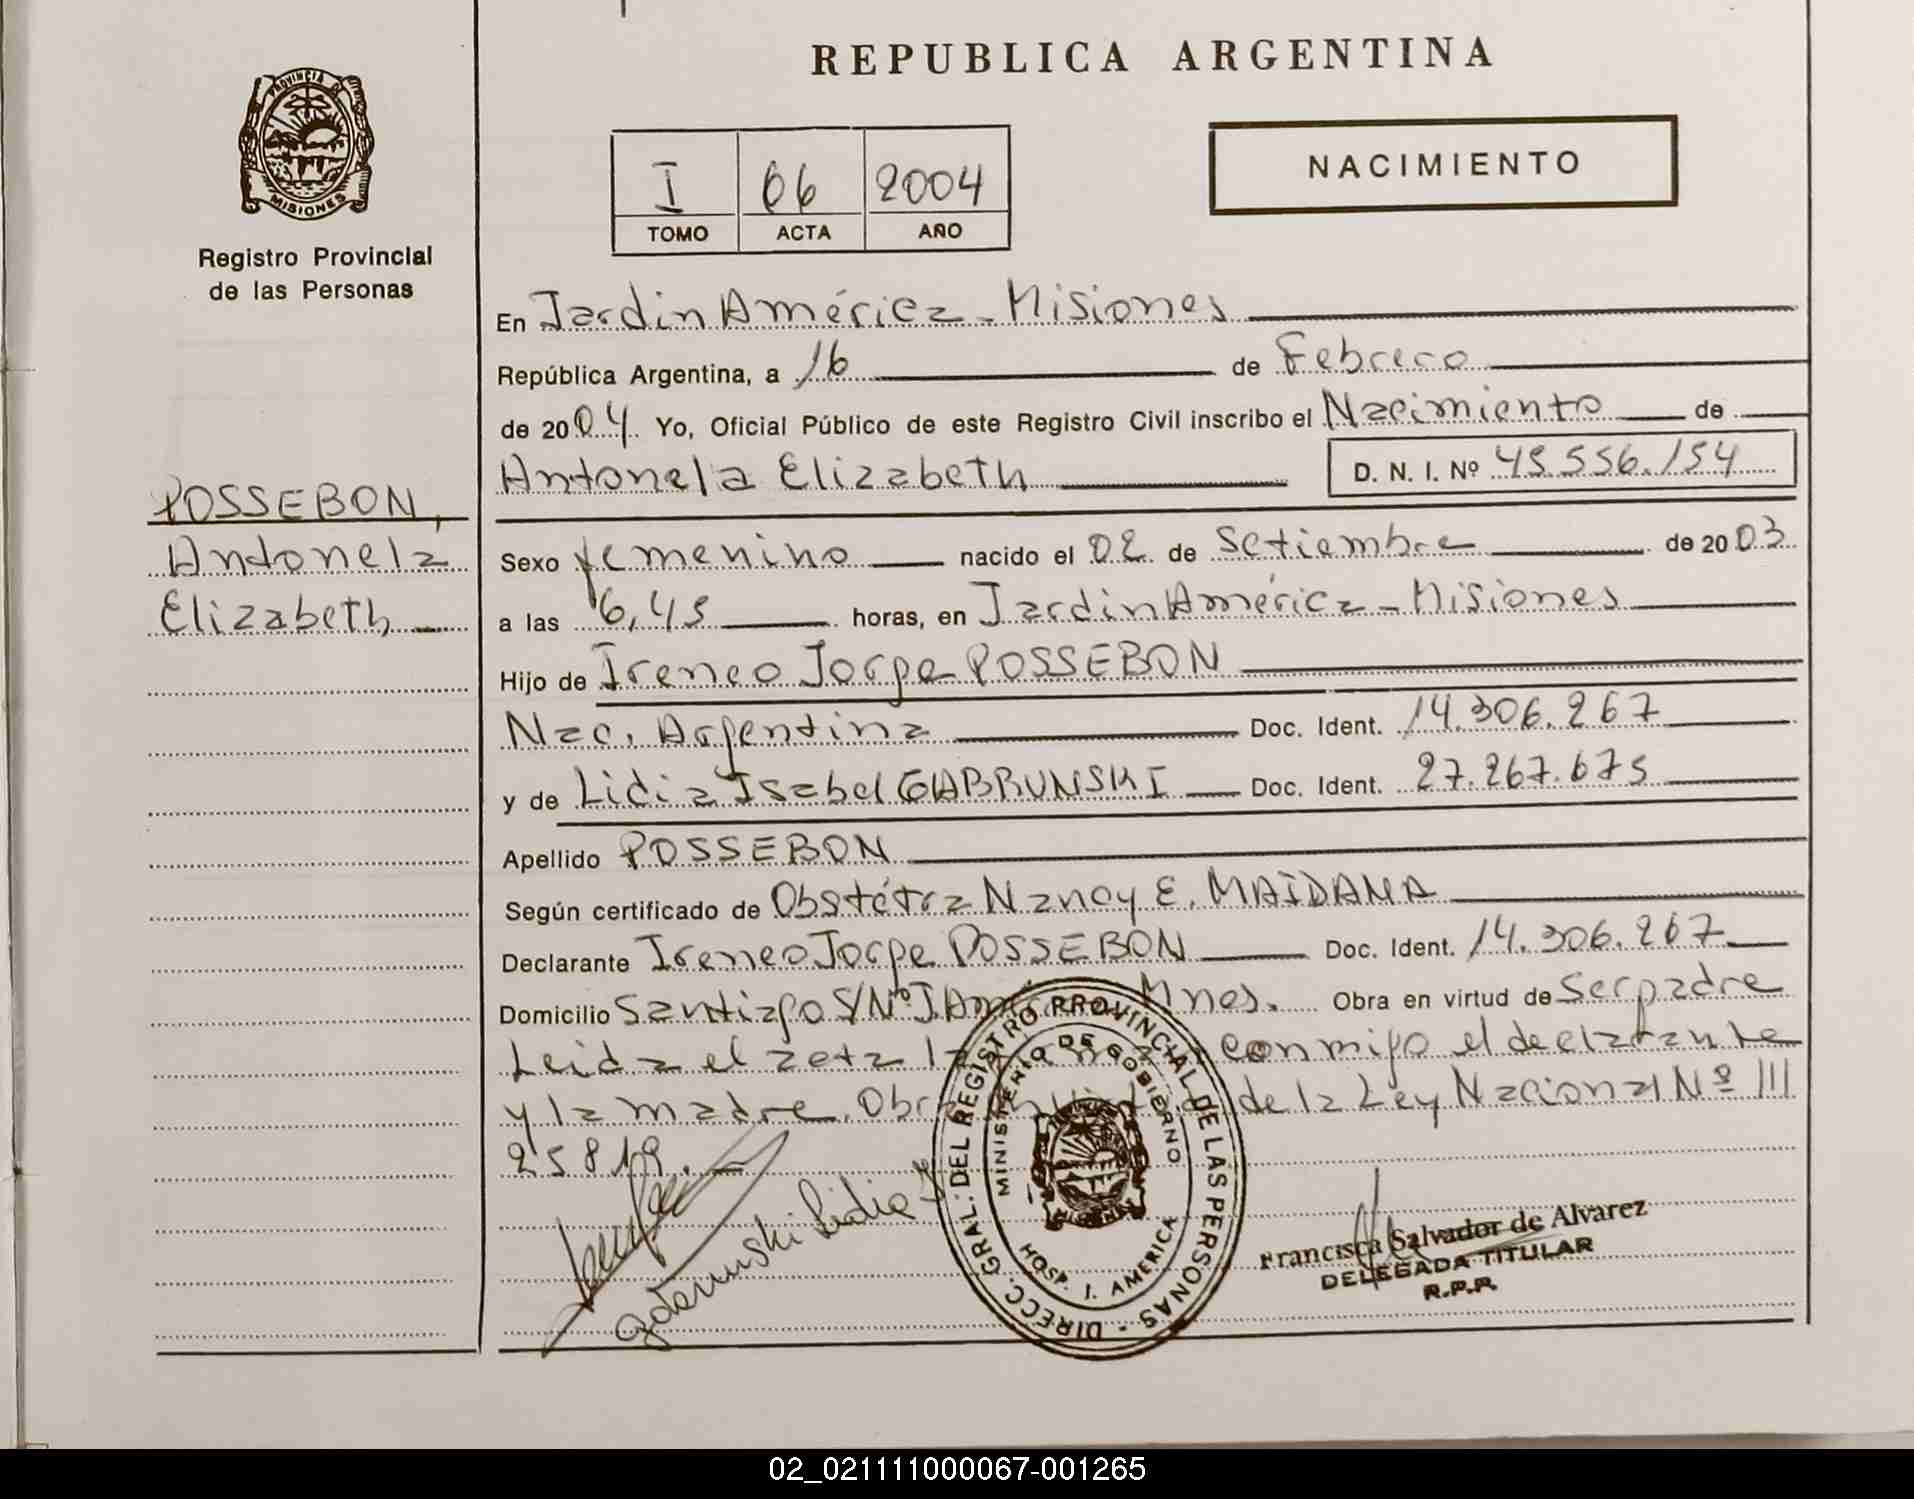 REPUBLICA ARGENTINA
PROVINCIA DE
MISIONES
Registro Provincial
de las Personas
I 66 2004
TOMO ACTA AÑO
NACIMIENTO
En Jardin América - Misiones
República Argentina, a 16 de Febrero
de 2004 Yo, Oficial Público de este Registro Civil inscribo el Nacimiento de
Antonela Elizabeth D. N. I. Nº 45.556.154
POSSEBON,
Antonela
Elizabeth
Sexo femenino nacido el 02 de Setiembre de 2003
a las 6,45 horas, en Jardin América - Misiones
Hijo de Ireneo Jorge POSSEBON
Nac. Argentina Doc. Ident. 14.306.267
y de Lidia Isabel GABRUNSKI Doc. Ident. 27.267.675
Apellido POSSEBON
Según certificado de Obstétra Nancy E. MAIDANA
Declarante Ireneo Jorge POSSEBON Doc. Ident. 14.306.267
Domicilio Santiago S/Nº J. América Mnes. Obra en virtud de Ser padre
Leida el acta la conmigo el declarante
y la madre. Obra de la Ley Nacional Nº
25819.
Gabrunski Lidia I
DIRECC. GRAL. DEL REGISTRO PROVINCIAL DE LAS PERSONAS -
MINISTERIO DE GOBIERNO
HOSP. J. AMERICA
Francisca Salvador de Alvarez
DELEGADA TITULAR
R.P.P.
02_021111000067-001265